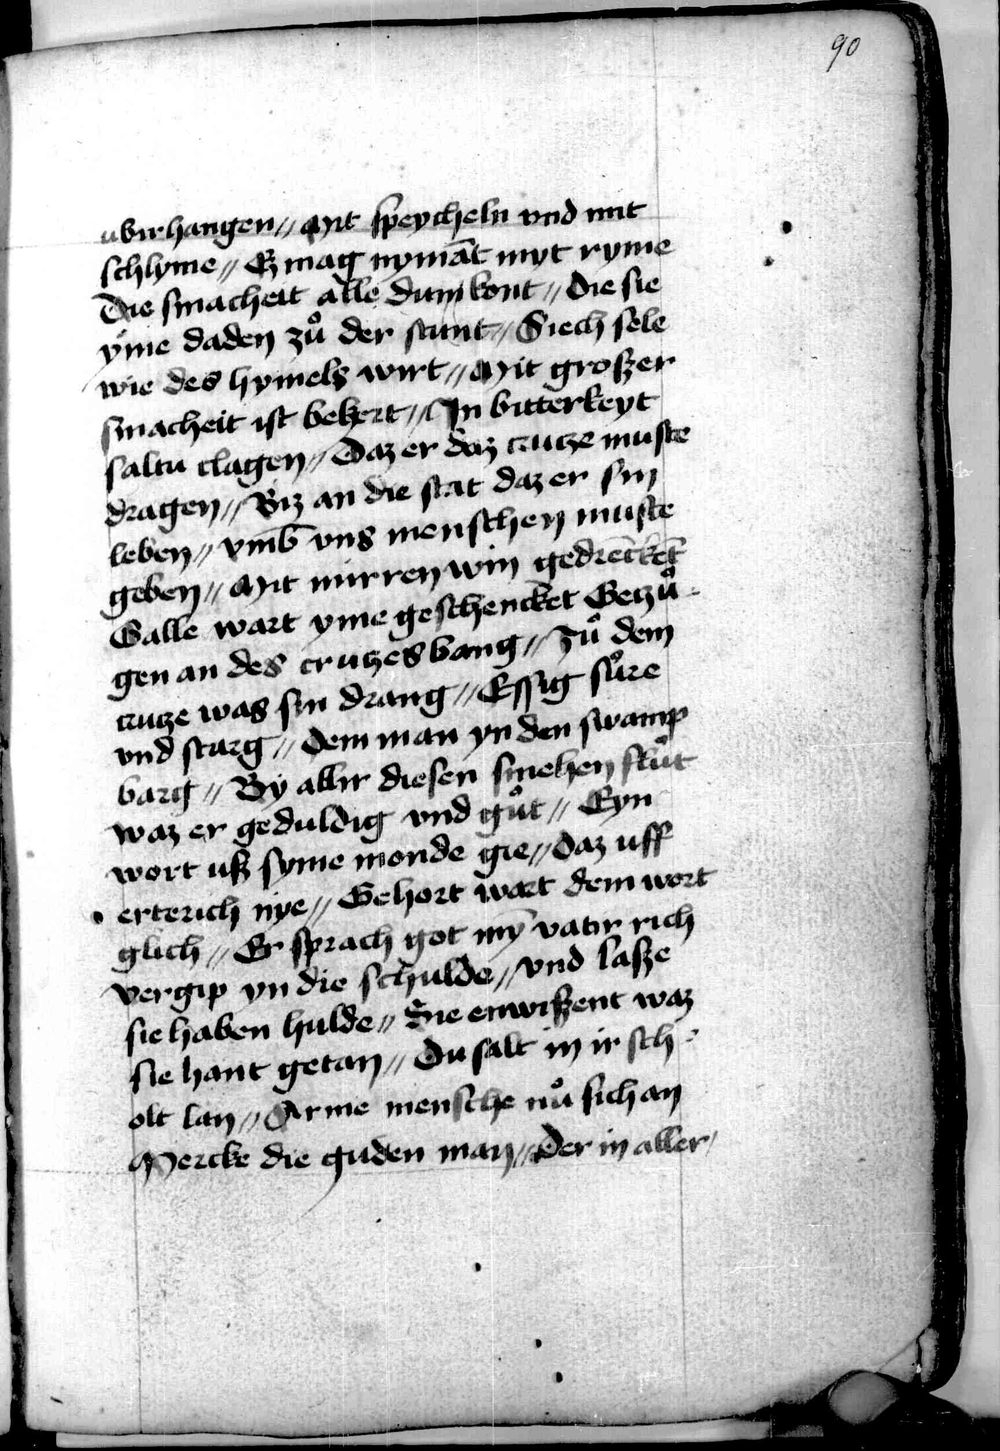 90
ubirhangen // Mit speycheln vnd mit
schlyme // Ez mag nymāt myt ryme
Die smacheit alle dum kont // Die sie
yme daden zuͦ der stunt // Siech sele
wie des hymels wirt // Mit großer
smacheit ist bekert // In bitterkeyt
saltu clagen // Daz er daz crutze muste
dragen // Biz an die stat daz er sin
leben // vmb vns menschen muste
geben // Mit mirren win gedrēcket
Galle wart yme geschencket Getzuͦ-
gen an des crutzes bang // Zuͦ dem
crutze was sin drang // Essig suͦre
vnd starg // Dem man yn den swamp
barg // By allir diesen smehen fluͦt
waz er geduldig vnd guͦt // Eyn
wort uß syme monde gie // Daz uff
erterich nye // Gehort wart dem wort
glich // Er sprach got my̅ vatir rich
vergip yn die schulde // vnd laße
sie haben hulde // Sie enwißent waz
sie hant getan // Du salt in ir sch-
olt lan // Arme mensche nuͦ sich an
Mercke die guden man // Der in aller